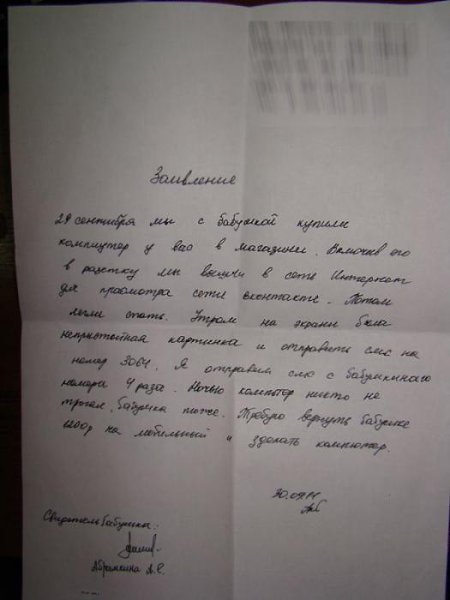 Заявление
29 сентября мы с бабушкой купили
компиутер у вас в магазини. Включив его
в разетку мы вышли в сети Интернет
для прасмотра сети вконтакте. Патом
легли спать. Утрам на экраны была
непристойная картинка и отправить смс на
номер 3064. Я отправил смс с бабушкиного
номера 4 раза. Ночью компютор никто не
трогал, бабушка тоже. Требую вернуть бабушке
1200р на мобильный и зделать компютор.
30.09.11
Свидетель бабушки:
Абрамкина А.Е.